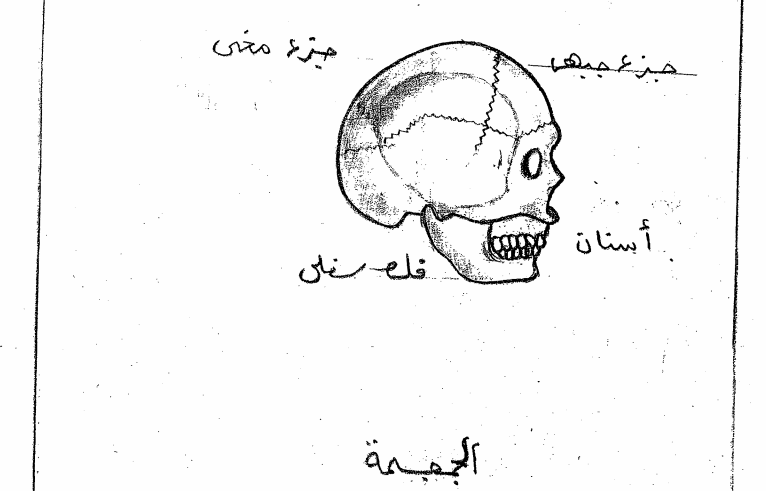 جزء جبهى
جزء مخى
أسنان
فك سفلى
الجمجمة